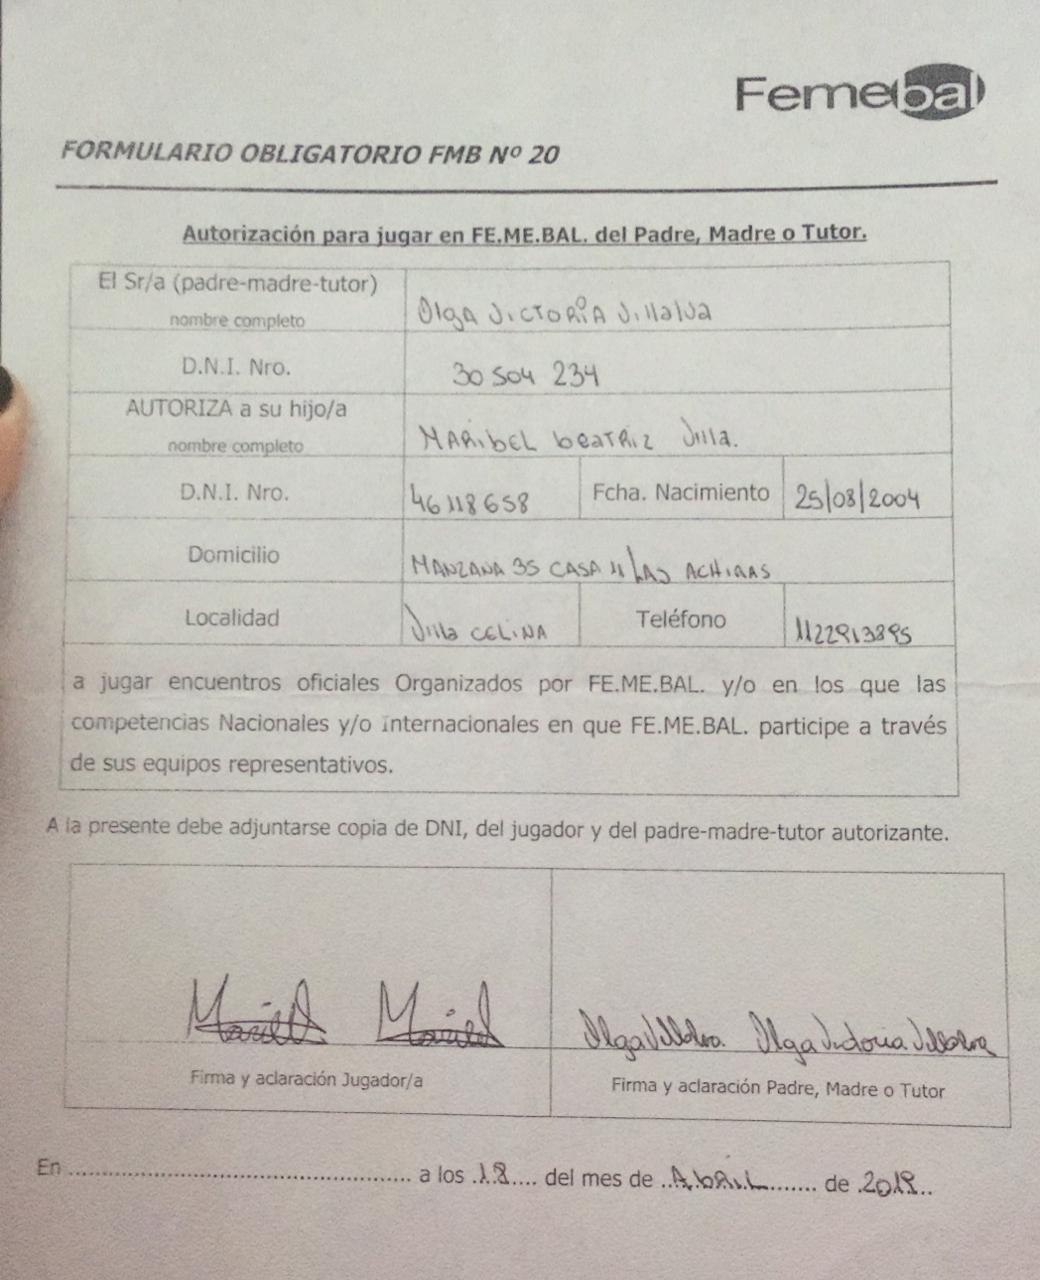 Femebal
FORMULARIO OBLIGATORIO FMB Nº 20
Autorización para jugar en FE.ME.BAL. del Padre, Madre o Tutor.
El Sr/a (padre-madre-tutor)
nombre completo
Olga VICTORIA Villalva
D.N.I. Nro.
30 504 234
AUTORIZA a su hijo/a
nombre completo
MARIBEL beaTRIZ Villa.
D.N.I. Nro.
46118658
Fcha. Nacimiento
25/08/2004
Domicilio
MANZANA 35 CASA 11 LAS ACHIRAS
Localidad
Villa CELINA
Teléfono
1122913895
a jugar encuentros oficiales Organizados por FE.ME.BAL. y/o en los que las
competencias Nacionales y/o Internacionales en que FE.ME.BAL. participe a través
de sus equipos representativos.
A la presente debe adjuntarse copia de DNI, del jugador y del padre-madre-tutor autorizante.
Olga Villalva Olga Victoria Villalva
Firma y aclaración Jugador/a
Firma y aclaración Padre, Madre o Tutor
En ........................................ a los .18.... del mes de ..AbRIL........ de .2019..